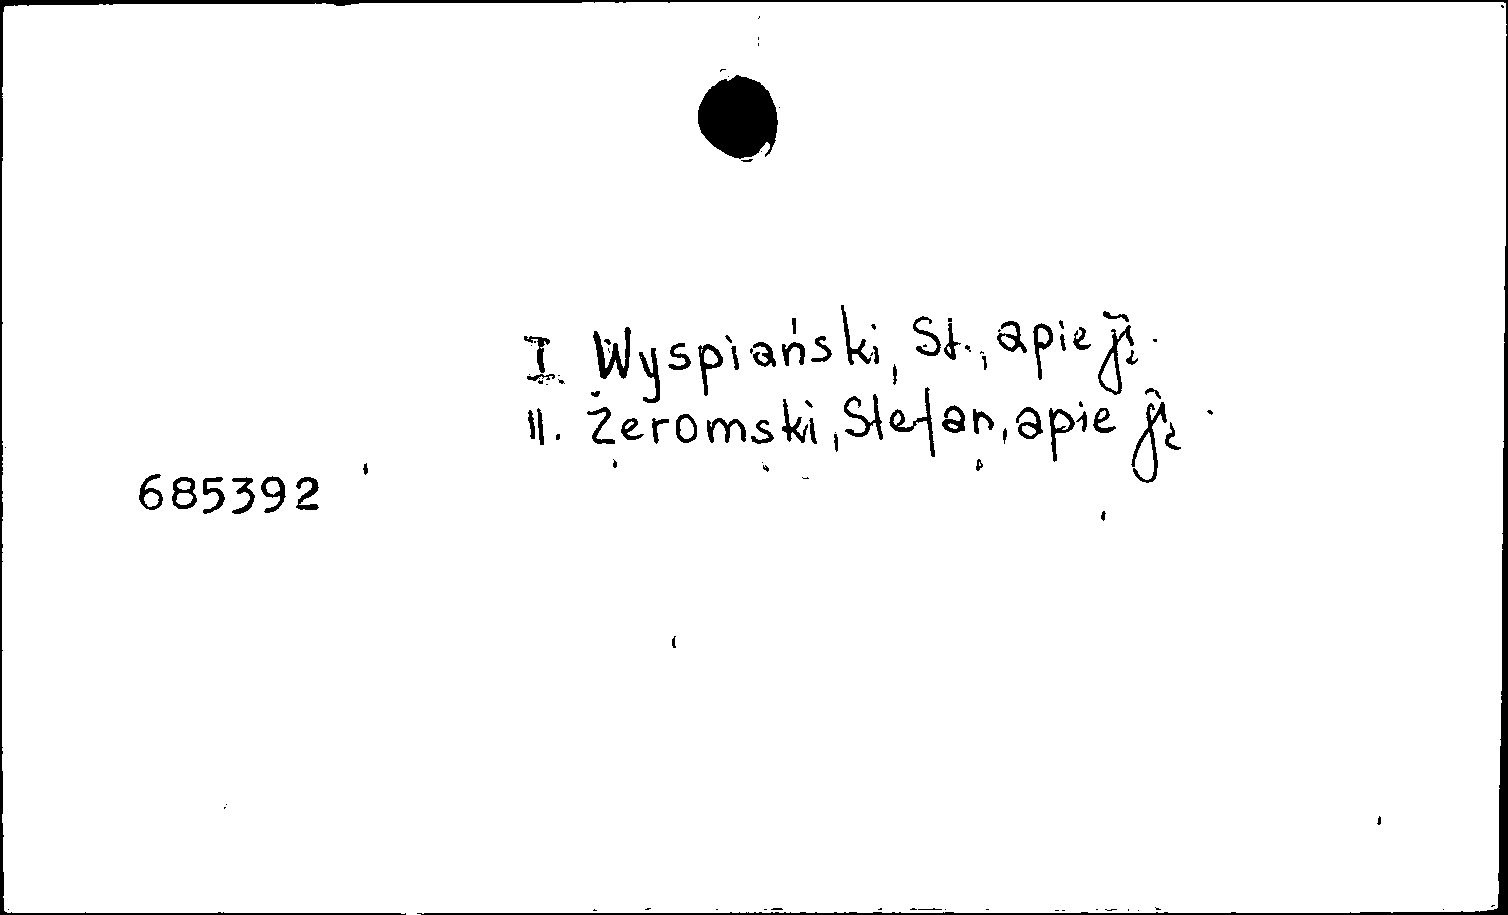 I Wyspiański, St., apie jį.
II. Żeromski, Stefan, apie jį.
685392